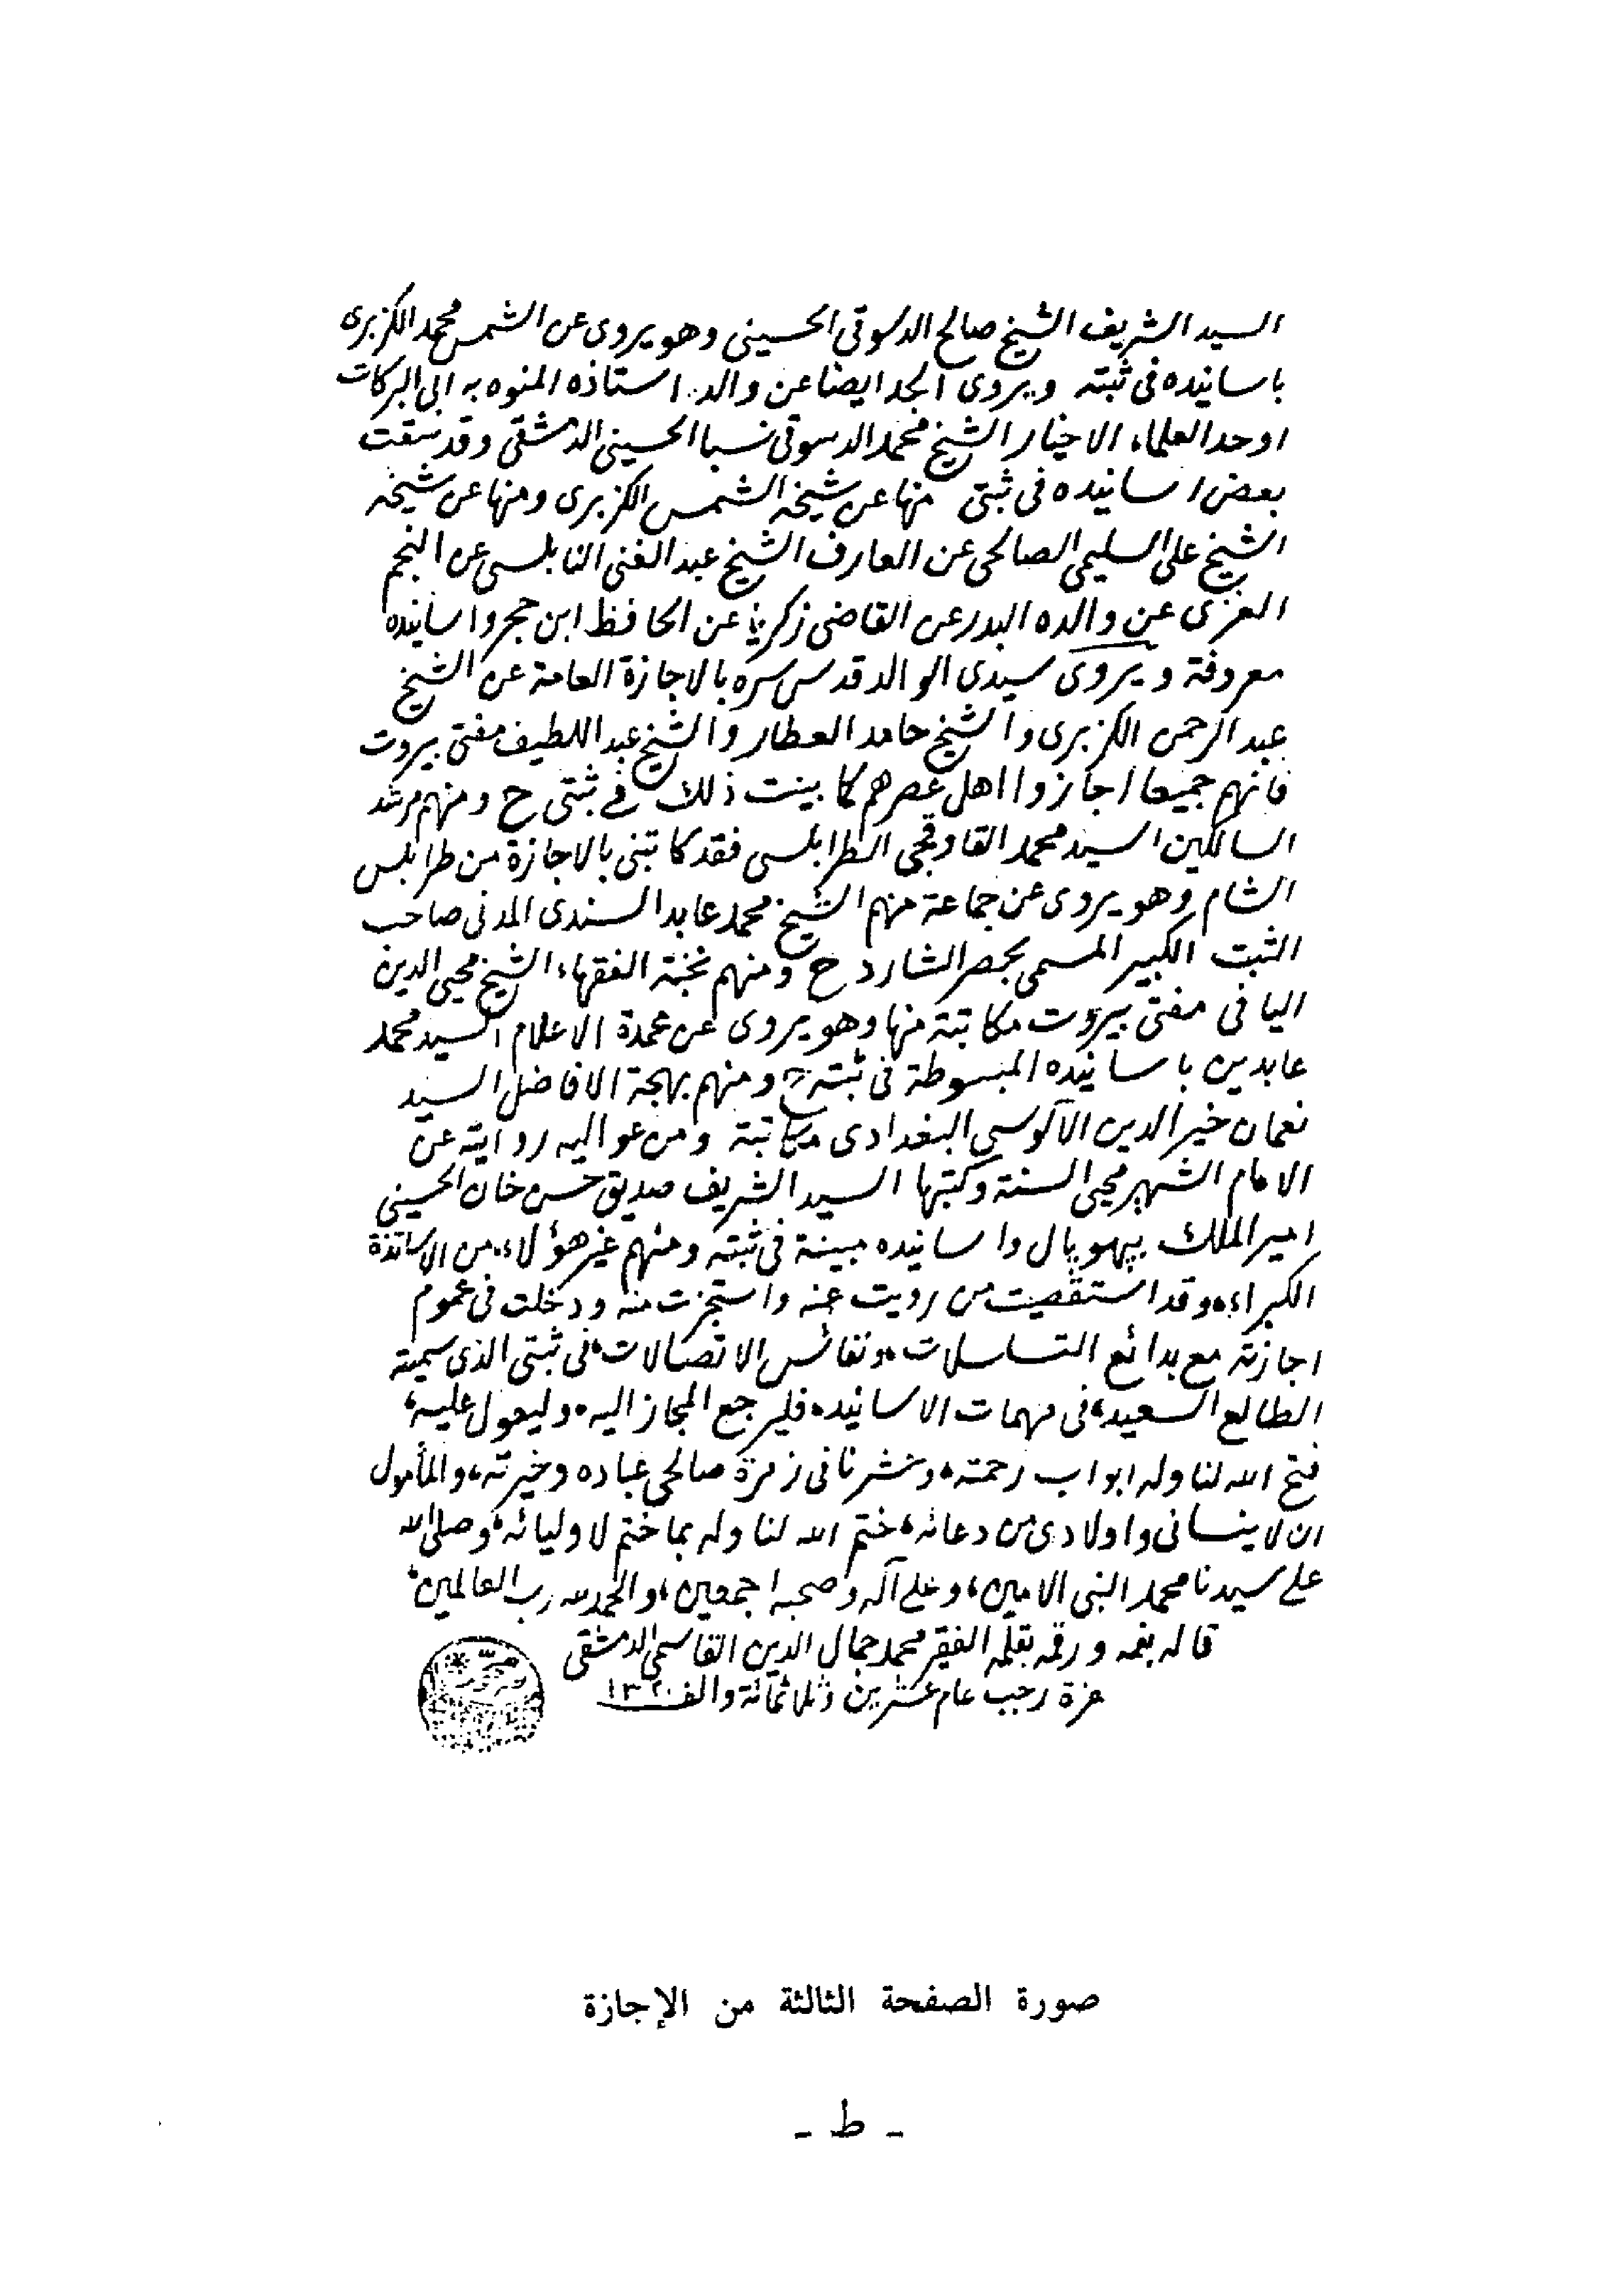 السيد الشريف الشيخ صالح الدسوقى الحسينى وهو يروى عن الشمس محمد الكزبرى
باسانيده فى ثبته ويروى الجد ايضا عن والد استاذه المنوه به ابى البركات
اوحد العلماء الاخيار الشيخ محمد الدسوقى نسبا الحسينى الدمشقى وقد سقت
بعض اسانيده فى ثبتى منها عن شيخه الشمس الكزبرى ومنها عن شيخه
الشيخ على السليمى الصالحى عن العارف الشيخ عبد الغنى النابلسى عن النجم
الغزى عن والده البدر عن القاضى زكريا عن الحافظ ابن حجر واسانيده
معروفة ويروى سيدى الوالد قدس سره بالاجازة العامة عن الشيخ
عبد الرحمن الكزبرى والشيخ حامد العطار والشيخ عبد اللطيف مفتى بيروت
فانهم جميعا اجازوا اهل عصرهم كما بينت ذلك فى ثبتى ح ومنهم مرشد
السالكين السيد محمد القاوقجى الطرابلسى فقد كاتبنى بالاجازة من طرابلس
الشام وهو يروى عن جماعة منهم الشيخ محمد عابد السندى المدنى صاحب
الثبت الكبير المسمى بحصر الشارد ح ومنهم نخبة الفقهاء الشيخ محيى الدين
اليافى مفتى بيروت مكاتبة منها وهو يروى عن عمدة الاعلام السيد محمد
عابدين باسانيده المبسوطة فى ثبته ح ومنهم بهجة الافاضل السيد
نعمان خير الدين الآلوسى البغدادى مكاتبة ومن عواليه روايته عن
الامام الشهير محيى السنة وكتبها السيد الشريف صديق حسن خان الحسينى
امير الملك ببهوپال واسانيده مبينة فى ثبته ومنهم غير هؤلاء من الاساتذة
الكبراء، وقد استقصيت من رويت عنه واستجزت منه ودخلت فى عموم
اجازته مع بدائع التسلسلات، ونفائس الاتصالات، فى ثبتى الذى سميته
الطالع السعيد، فى مهمات الاسانيد، فليرجع المجاز اليه، وليعول عليه،
فتح الله لنا وله ابواب رحمته، وحشرنا فى زمرة صالحى عباده وخيرته، والمأمول
ان لا ينسانى واولادى من دعائه، ختم الله لنا وله بما ختم لاوليائه، وصلى الله
على سيدنا محمد النبى الامين، وعلى آله وصحبه اجمعين، والحمد لله رب العالمين،
قاله بفمه ورقمه بقلمه الفقير محمد جمال الدين القاسمى الدمشقى
غرة رجب عام عشرين وثلاثمائة والف ١٣٢٠
صورة الصفحة الثالثة من الإجازة
- ط -